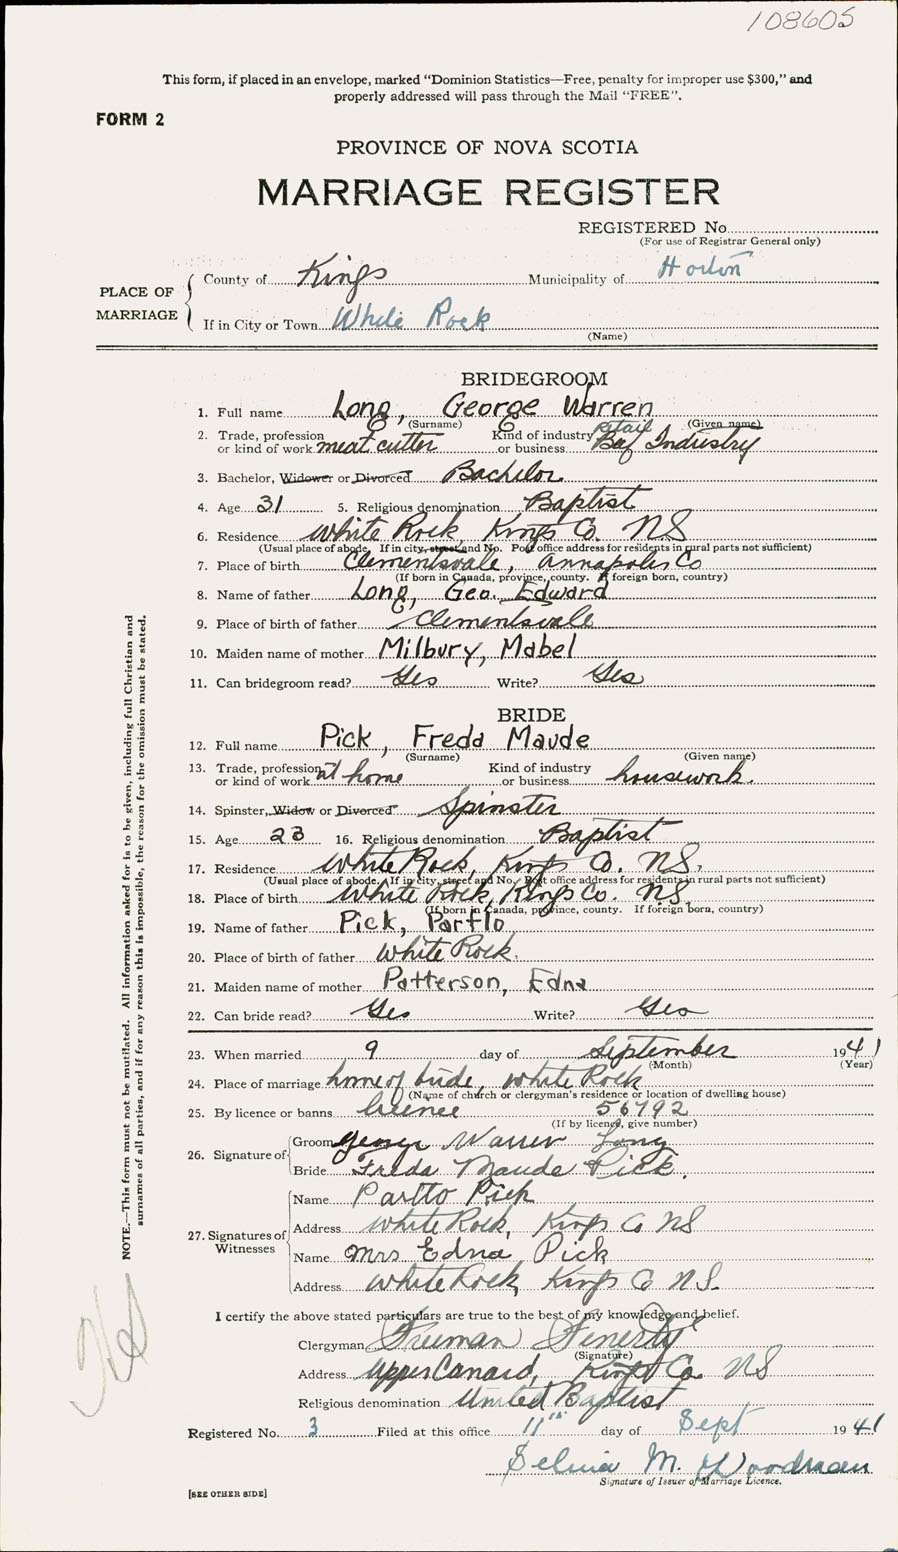 108605
This form, if placed in an envelope, marked “Dominion Statistics—Free, penalty for improper use $300,” and
properly addressed will pass through the Mail “FREE”.
FORM 2
PROVINCE OF NOVA SCOTIA
MARRIAGE REGISTER
REGISTERED No.
(For use of Registrar General only)
PLACE OF MARRIAGE
County of Kings Municipality of Horton
If in City or Town White Rock
(Name)
BRIDEGROOM
1. Full name Long, George Warren
(Surname) (Given name)
2. Trade, profession or kind of work meat cutter Kind of industry or business Retail Industry
3. Bachelor, Widower or Divorced Bachelor
4. Age 31 5. Religious denomination Baptist
6. Residence White Rock, Kings Co. NS
(Usual place of abode. If in city, street and No. Post office address for residents in rural parts not sufficient)
7. Place of birth Clementsvale, Annapolis Co
(If born in Canada, province, county. If foreign born, country)
8. Name of father Long, Geo. Edward
9. Place of birth of father Clementsvale
10. Maiden name of mother Milbury, Mabel
11. Can bridegroom read? Yes Write? Yes
BRIDE
12. Full name Pick, Freda Maude
(Surname) (Given name)
13. Trade, profession or kind of work at home Kind of industry or business housework.
14. Spinster, Widow or Divorced Spinster
15. Age 23 16. Religious denomination Baptist
17. Residence White Rock, Kings Co. NS.
(Usual place of abode. If in city, street and No. Post office address for residents in rural parts not sufficient)
18. Place of birth White Rock, Kings Co. NS.
(If born in Canada, province, county. If foreign born, country)
19. Name of father Pick, Partlo
20. Place of birth of father White Rock.
21. Maiden name of mother Patterson, Edna
22. Can bride read? Yes Write? Yes
23. When married 9 day of September 1941
(Month) (Year)
24. Place of marriage home of bride, White Rock
(Name of church or clergyman's residence or location of dwelling house)
25. By licence or banns licence 56792
(If by licence, give number)
26. Signature of
Groom George Warren Long
Bride Freda Maude Pick.
27. Signatures of Witnesses
Name Partlo Pick
Address White Rock, Kings Co NS
Name Mrs Edna Pick
Address White Rock, Kings Co NS.
I certify the above stated particulars are true to the best of my knowledge and belief.
Clergyman Freeman Fenerty
(Signature)
Address Upper Canard, Kings Co. NS
Religious denomination United Baptist
Registered No. 3 Filed at this office 11th day of Sept 1941
Selina M. Woodman
Signature of Issuer of Marriage Licence.
[SEE OTHER SIDE]
NOTE.—This form must not be mutilated. All information asked for is to be given, including full Christian and
surnames of all parties, and if for any reason this is impossible, the reason for the omission must be stated.